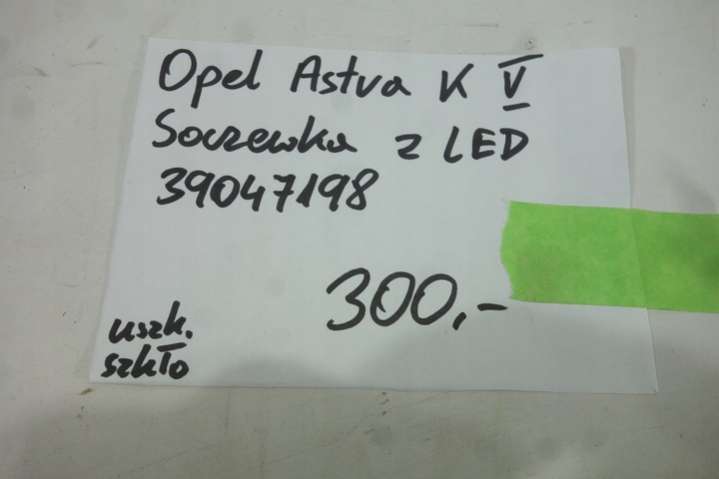 Opel Astra K V
Soczewka z LED
39047198
300,-
uszk.
szkło